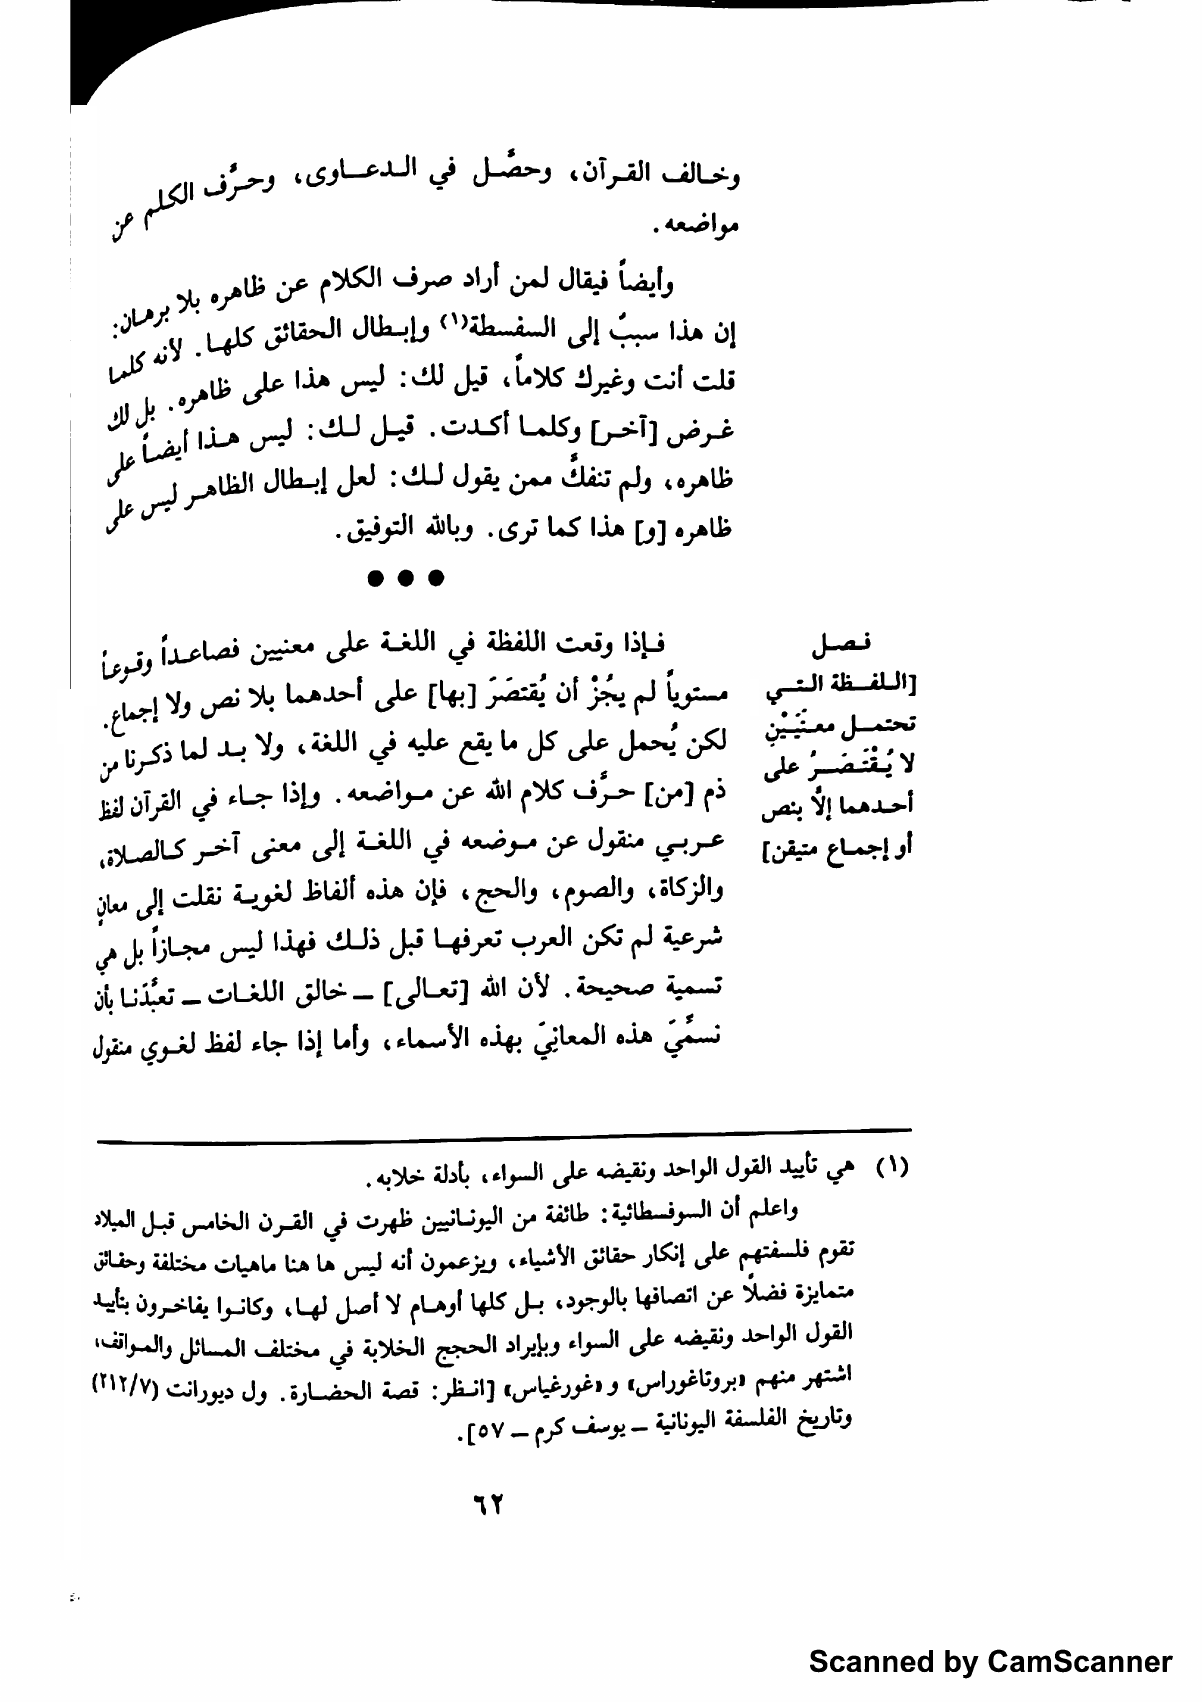 وخالف القرآن، وحصَّل في الدعاوى، وحرَّف الكلم عن
مواضعه.
وأيضاً فيقال لمن أراد صرف الكلام عن ظاهره بلا برهان:
إن هذا سببٌ إلى السفسطة(١) وإبطال الحقائق كلها. لأنه كلما
قلت أنت وغيرك كلاماً، قيل لك: ليس هذا على ظاهره. بل لك
غرض [آخر] وكلما أكدت. قيل لك: ليس هذا أيضاً على
ظاهره، ولم تنفكَّ ممن يقول لك: لعل إبطال الظاهر ليس على
ظاهره [و] هذا كما ترى. وبالله التوفيق.
● ● ●
فصل
[اللفظة التي
تحتمل معنَيَيْنِ
لا يُقْتَصَرُ على
أحدهما إلَّا بنص
أو إجماع متيقن]
فإذا وقعت اللفظة في اللغة على معنيين فصاعداً وقوعاً
مستوياً لم يجُزْ أن يُقتصَرَ [بها] على أحدهما بلا نص ولا إجماع.
لكن يُحمل على كل ما يقع عليه في اللغة، ولا بد لما ذكرنا من
ذم [من] حرَّف كلام الله عن مواضعه. وإذا جاء في القرآن لفظ
عربي منقول عن موضعه في اللغة إلى معنى آخر كالصلاة،
والزكاة، والصوم، والحج، فإن هذه ألفاظ لغوية نقلت إلى معانٍ
شرعية لم تكن العرب تعرفها قبل ذلك فهذا ليس مجازاً بل هي
تسمية صحيحة. لأن الله [تعالى] ــ خالق اللغات ــ تعبَّدَنا بأن
نسمَّيَ هذه المعانِيَ بهذه الأسماء، وأما إذا جاء لفظ لغوي منقول
(١) هي تأييد القول الواحد ونقيضه على السواء، بأدلة خلابه.
واعلم أن السوفسطائية: طائفة من اليونانيين ظهرت في القرن الخامس قبل الميلاد
تقوم فلسفتهم على إنكار حقائق الأشياء، ويزعمون أنه ليس ها هنا ماهيات مختلفة وحقائق
متمايزة فضلاً عن اتصافها بالوجود، بل كلها أوهام لا أصل لها، وكانوا يفاخرون بتأييد
القول الواحد ونقيضه على السواء وبإيراد الحجج الخلابة في مختلف المسائل والمواقف،
اشتهر منهم «بروتاغوراس» و «غورغياس» [انظر: قصة الحضارة. ول ديورانت (٢١٢/٧)
وتاريخ الفلسفة اليونانية ــ يوسف كرم ــ ٥٧].
٦٢
Scanned by CamScanner